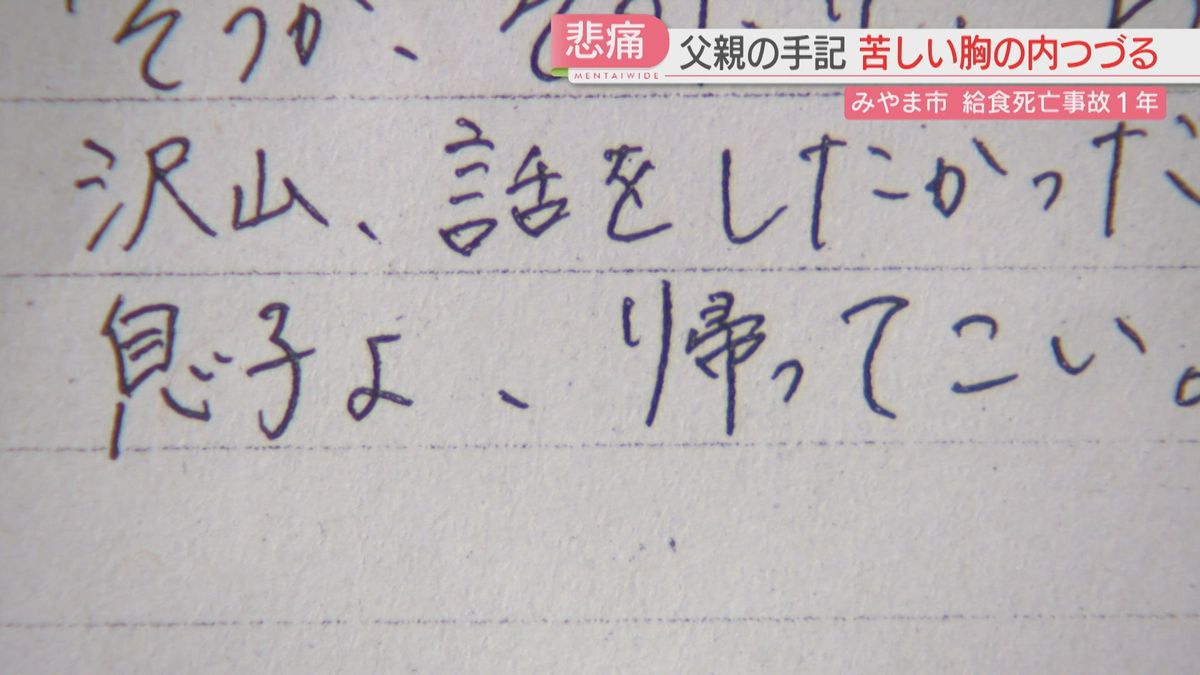 悲痛
MENTAIWIDE
父親の手記 苦しい胸の内つづる
みやま市 給食死亡事故1年
沢山、話をしたかった
息子よ、帰ってこい。